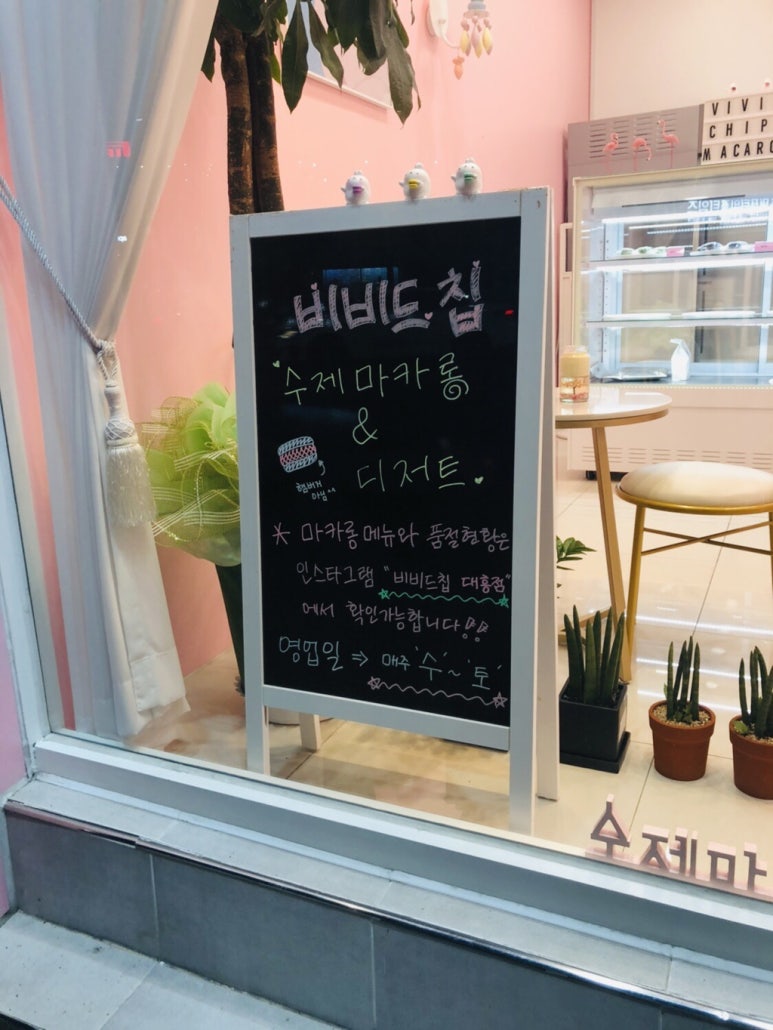 VIVI
CHIP
MACARO
비비드칩
수제마카롱
&
디저트
햄버거
아님^^
* 마카롱메뉴와 품절현황은
인스타그램 "비비드칩 대흥점"
에서 확인가능합니다!!
영업일 ⇒ 매주 '수'~'토'
수제마